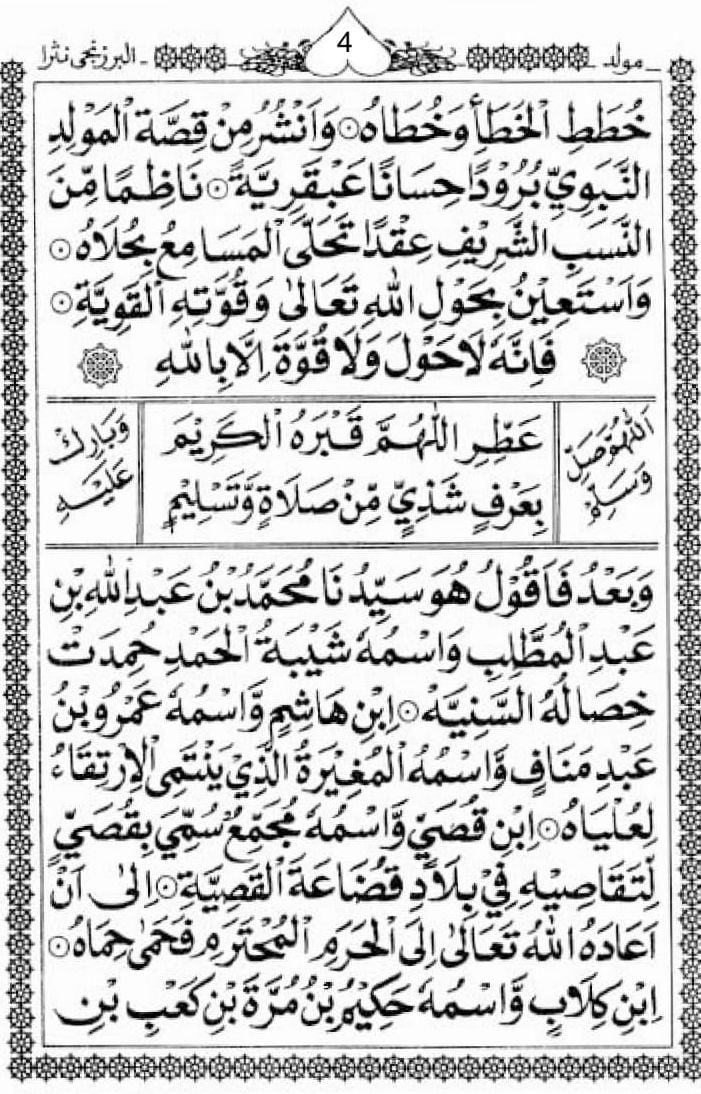 مولد
4
البرزنجى نثرا
خُطَطِ الْخَطَأِ وَخُطَاهُ ۝ وَاَنْشُرُ مِنْ قِصَّةِ الْمَوْلِدِ
النَّبَوِيِّ بُرُوْدًا حِسَانًا عَبْقَرِيَّةً ۝ نَاظِمًا مِّنَ
النَّسَبِ الشَّرِيْفِ عِقْدًا تَحَلَّى الْمَسَامِعُ بِحُلَاهُ ۝
وَاَسْتَعِيْنُ بِحَوْلِ اللهِ تَعَالٰى وَقُوَّتِهِ الْقَوِيَّةِ ۝
فَاِنَّهٗ لَا حَوْلَ وَلَا قُوَّةَ اِلَّا بِاللهِ
اَللّٰهُمَّ صَلِّ
وَسَلِّمْ
عَطِّرِ اللّٰهُمَّ قَبْرَهُ الْكَرِيْمَ
بِعَرْفٍ شَذِيٍّ مِّنْ صَلَاةٍ وَّتَسْلِيْمٍ
وَبَارِكْ
عَلَيْهِ
وَبَعْدُ فَاَقُوْلُ هُوَ سَيِّدُنَا مُحَمَّدُ بْنُ عَبْدِ اللهِ بْنِ
عَبْدِ الْمُطَّلِبِ وَاسْمُهٗ شَيْبَةُ الْحَمْدِ حُمِدَتْ
خِصَالُهُ السَّنِيَّهْ ۝ اِبْنِ هَاشِمٍ وَّاسْمُهٗ عَمْرُو بْنُ
عَبْدِ مَنَافٍ وَّاسْمُهُ الْمُغِيْرَةُ الَّذِيْ يَنْتَمِى الْاِرْتِقَاءُ
لِعُلْيَاهُ ۝ اِبْنِ قُصَيٍّ وَّاسْمُهٗ مُجَمِّعٌ سُمِّيَ بِقُصَيٍّ
لِّتَقَاصِيْهِ فِيْ بِلَادِ قُضَاعَةَ الْقَصِيَّةِ ۝ اِلٰى اَنْ
اَعَادَهُ اللهُ تَعَالٰى اِلَى الْحَرَمِ الْمُحْتَرَمِ فَحَمٰى حِمَاهُ ۝
اِبْنِ كِلَابٍ وَّاسْمُهٗ حَكِيْمُ بْنُ مُرَّةَ بْنِ كَعْبِ بْنِ